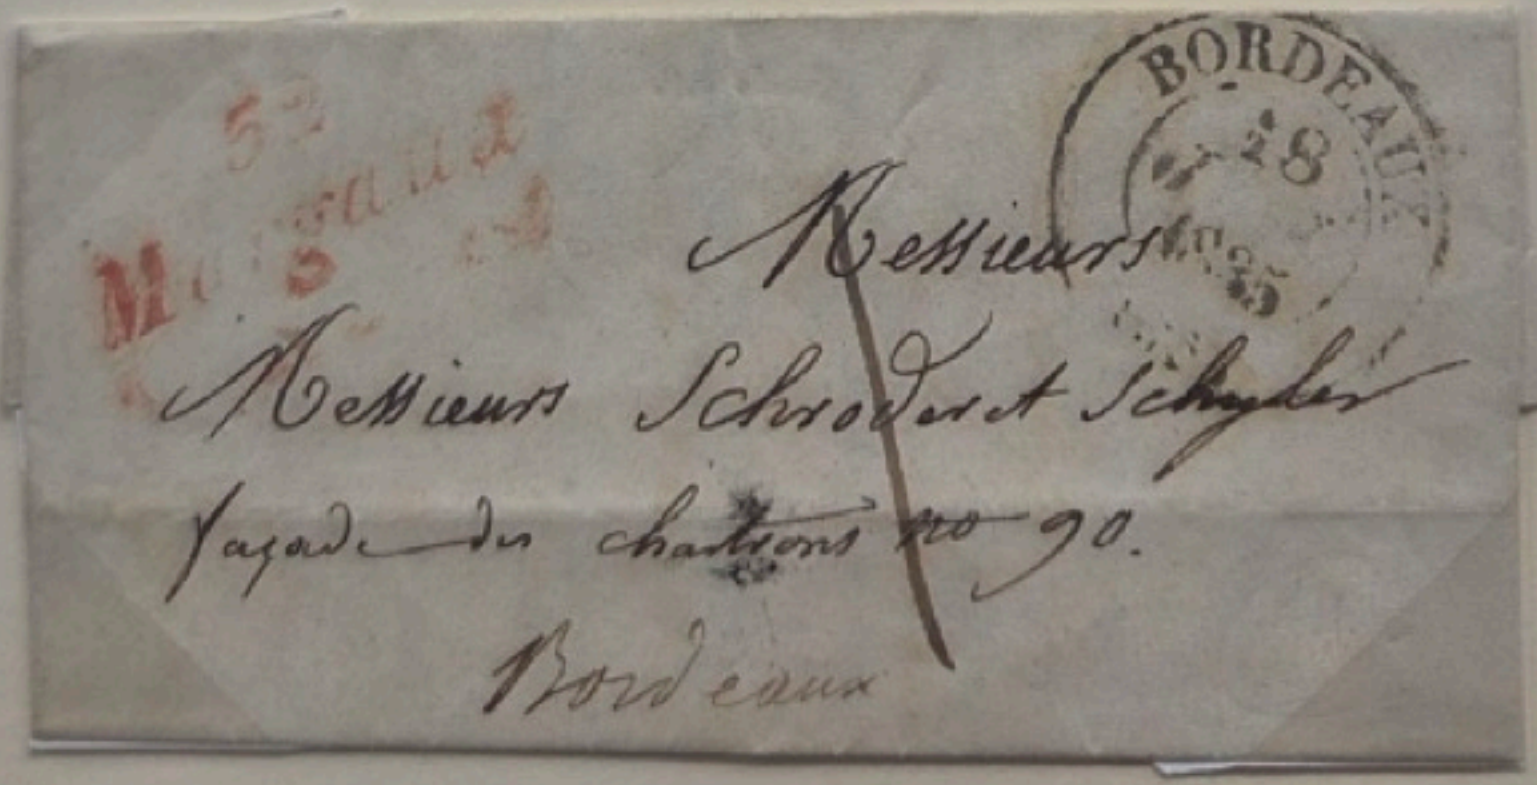 BORDEAUX
18
1835
Messieurs
Messieurs Schroder et Schyler
façade des chartrons no 90.
Bordeaux